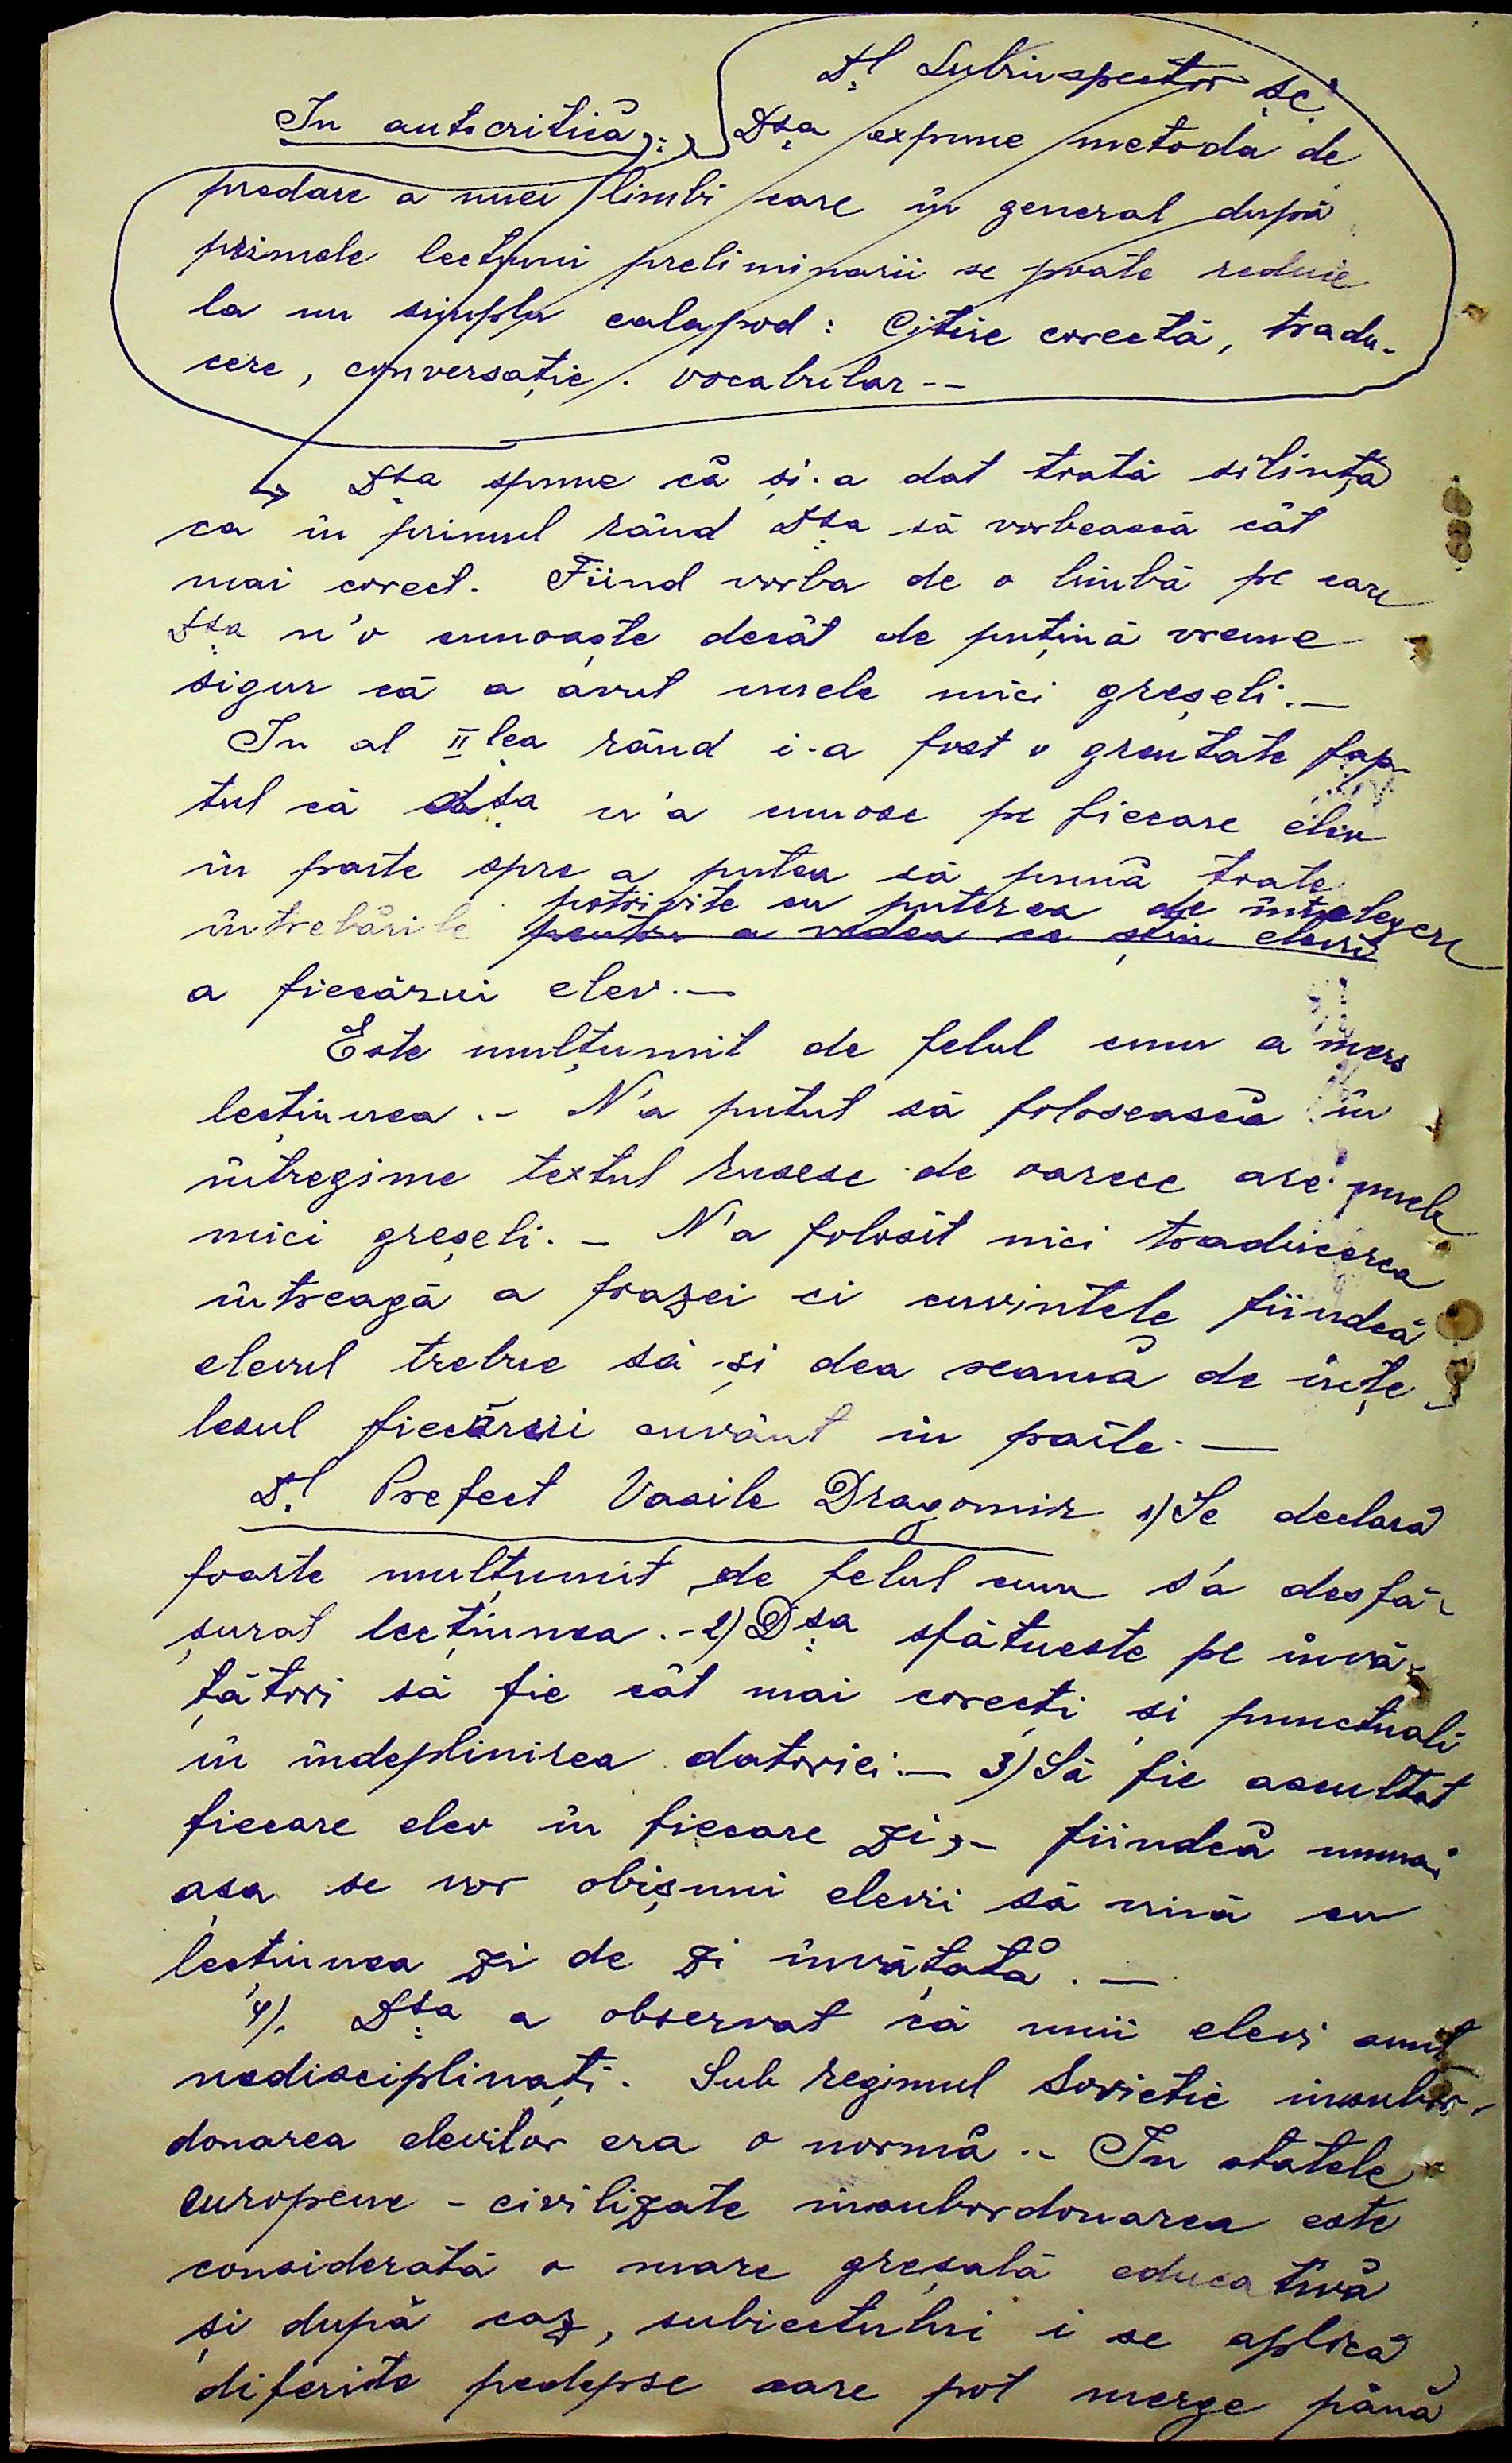 Dl Subinspector șc.
In autocritică: Dsa expune metoda de
predare a unei limbi care în general după
primele lecțiuni preliminarii se poate reduce
la un simplu calapod: Citire corectă, tradu-
cere, conversație. vocabular --
Dsa spune că și-a dat toată silința
ca în primul rând Dsa să vorbească cât
mai corect. Fiind vorba de o limbă pe care
Dsa n'o cunoaște decât de puțină vreme
sigur că a avut unele mici greșeli.—
In al II lea rând i-a fost o greutate fap-
tul că dsa n'a cunosc pe fiecare elev
în parte spre a putea să pună toate
potrivite cu puterea de înțelegere
întrebările pentru a vedea ce știu elevii
a fiecărui elev.—
Este mulțumit de felul cum a mers
lecțiunea.- N'a putut să folosească în
întregime textul rusesc de oarece are unele
mici greșeli.- N'a folosit nici traducerea
întreagă a frazei ci cuvintele fiindcă
elevul trebue să-și dea seama de înțe-
lesul fiecărui cuvânt în parte.—
Dl Prefect Vasile Dragomir 1) Se declară
foarte mulțumit de felul cum s'a desfă-
șurat lecțiunea.- 2) Dsa sfătuește pe învă-
țători să fie cât mai corecți și punctuali
în îndeplinirea datoriei.— 3) Să fie ascultat
fiecare elev în fiecare zi,- fiindcă numai
așa se vor obișnui elevii să vină cu
lecțiunea zi de zi învățată.—
4). Dsa a observat că unii elevi sunt
nedisciplinați. Sub regimul Sovietic insubor-
donarea elevilor era o normă.- In statele
europene - civilizate insubordonarea este
considerată o mare greșală educativă
și după caz, subiectului i se aplică
diferite pedepse care pot merge până